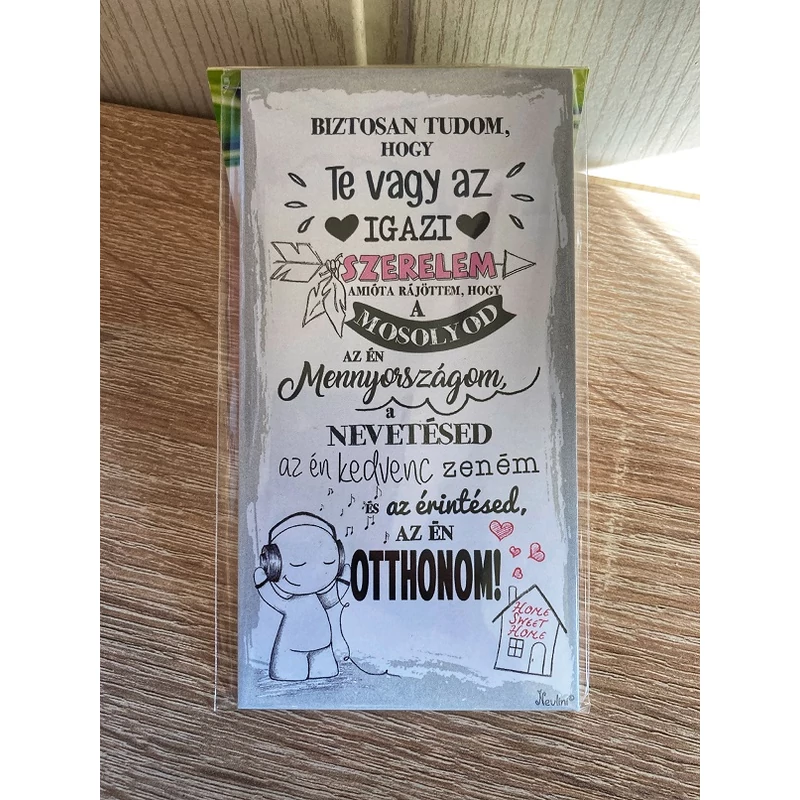 BIZTOSAN TUDOM,
HOGY
Te vagy az
IGAZI
SZERELEM
AMIÓTA RÁJÖTTEM, HOGY
A
MOSOLYOD
AZ ÉN
Mennyországom,
a
NEVETÉSED
az én kedvenc zeném
ÉS az érintésed,
AZ ÉN
OTTHONOM!
HOME
SWEET
HOME
Nevlini©